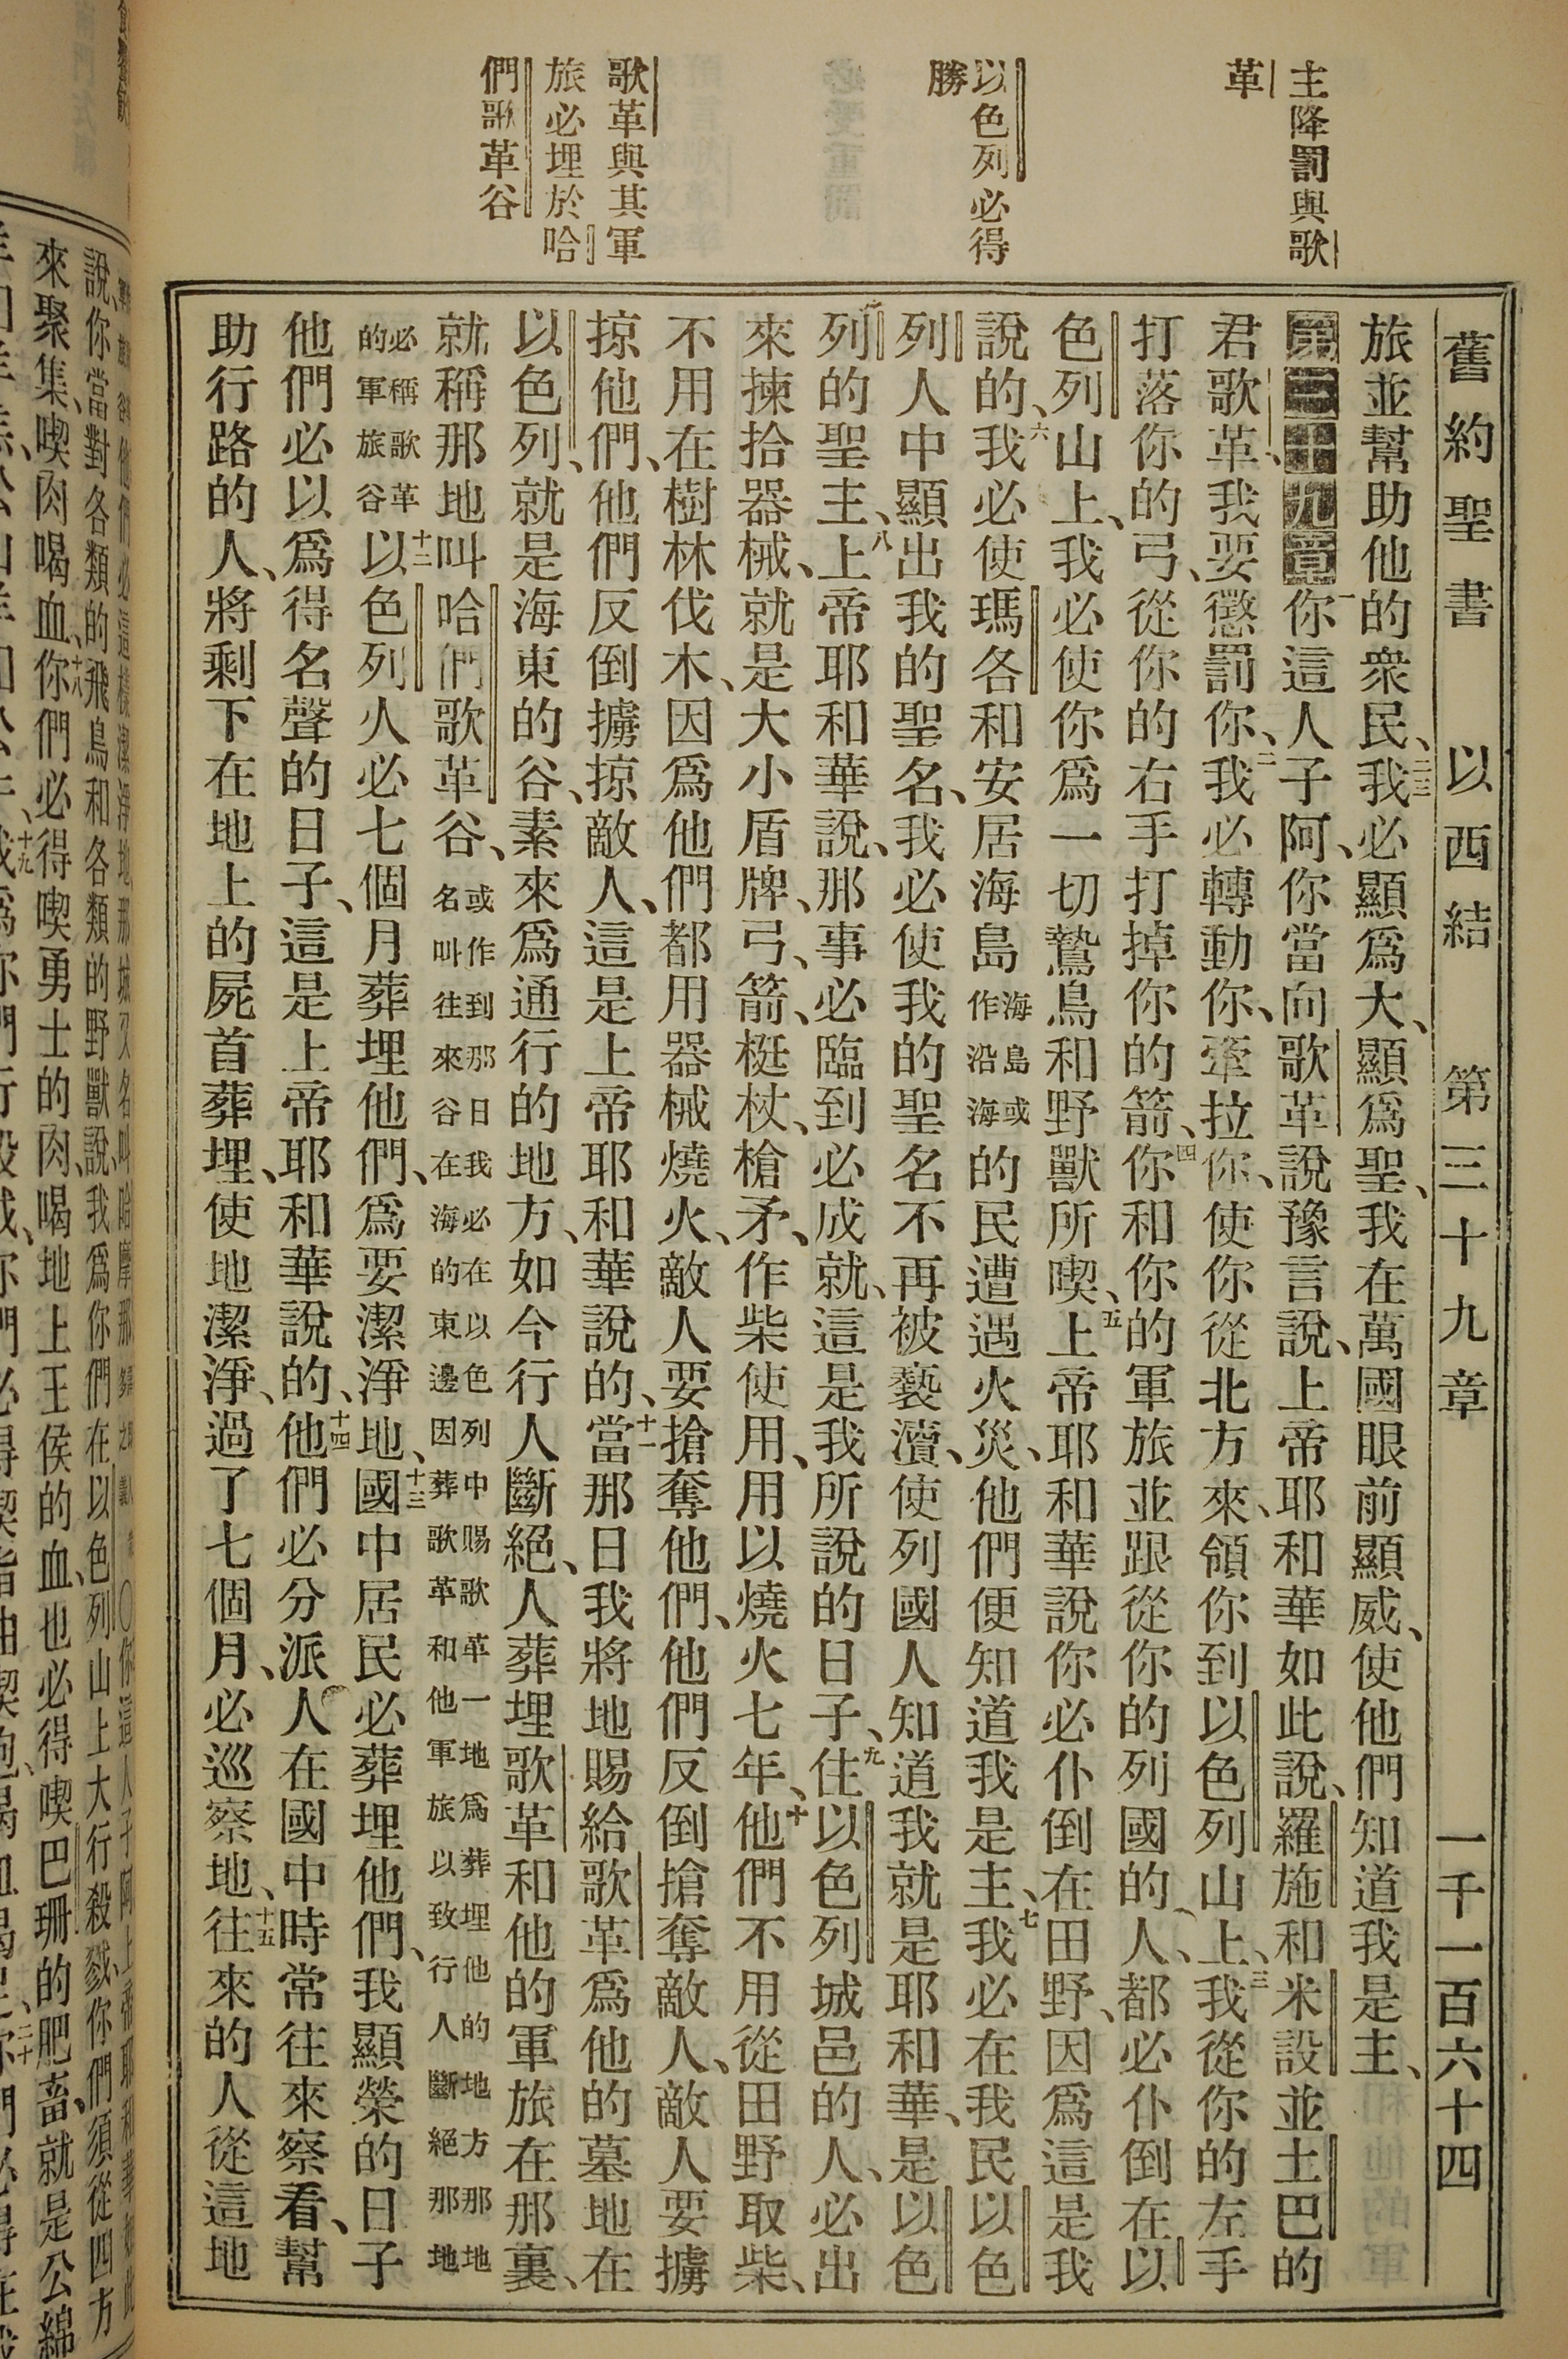 主降罰與歌
革
以色列必得
勝
歌革與其軍
旅必埋於哈
們歌革谷
舊約聖書 以西結 第三十九章 一千一百六十四
旅並幫助他的衆民、二三我必顯爲大、顯爲聖、我在萬國眼前顯威、使他們知道我是主、
第三十九章一你這人子阿、你當向歌革說豫言說、上帝耶和華如此說、羅施和米設並土巴的
君歌革、我要懲罰你、二我必轉動你、牽拉你、使你從北方來、領你到以色列山上、三我從你的左手
打落你的弓、從你的右手打掉你的箭、四你和你的軍旅並跟從你的列國的人、都必仆倒在以
色列山上、我必使你爲一切鷙鳥和野獸所喫、五上帝耶和華說你必仆倒在田野、因爲這是我
說的、六我必使瑪各和安居海島海島或作沿海的民遭遇火災、他們便知道我是主、七我必在我民以色
列人中顯出我的聖名、我必使我的聖名不再被褻瀆、使列國人知道我就是耶和華、是以色
列的聖主、八上帝耶和華說、那事必臨到必成就、這是我所說的日子、九住以色列城邑的人、必出
來揀拾器械、就是大小盾牌、弓、箭、梃杖、槍矛、作柴使用、用以燒火七年、十他們不用從田野取柴、
不用在樹林伐木、因爲他們都用器械燒火、敵人要搶奪他們、他們反倒搶奪敵人、敵人要擄
掠他們、他們反倒擄掠敵人、這是上帝耶和華說的、十一當那日我將地賜給歌革爲他的墓地在
以色列、就是海東的谷、素來爲通行的地方、如今行人斷絕、人葬埋歌革和他的軍旅在那裏、
就稱那地叫哈們歌革谷、或作到那日我必在以色列中賜歌革一地爲葬埋他的地方那地名叫往來谷在海的東邊因葬歌革和他軍旅以致行人斷絕那地
必稱歌革的軍旅谷十二以色列人必七個月葬埋他們、爲要潔淨地、十三國中居民必葬埋他們、我顯榮的日子
他們必以爲得名聲的日子、這是上帝耶和華說的、十四他們必分派人在國中時常往來察看、幫
助行路的人、將剩下在地上的屍首葬埋、使地潔淨、過了七個月、必巡察地、十五往來的人從這地
說、你當對各類的飛鳥和各類的野獸說、我爲你們在以色列山上大行殺戮、你們須從四方
來聚集、喫肉喝血、十八你們必得喫勇士的肉、喝地上王侯的血、也必得喫巴珊的肥畜、就是公綿